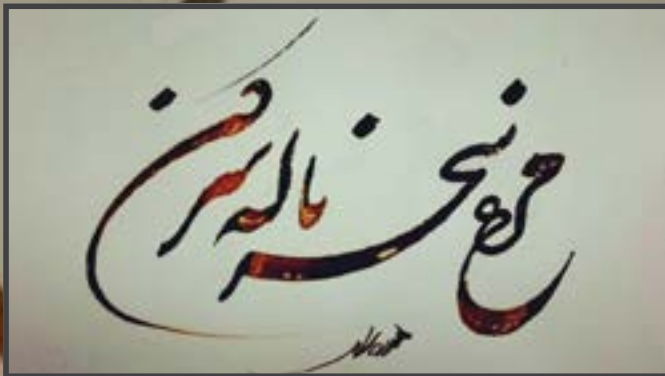 مرغ سحر ناله سر کن